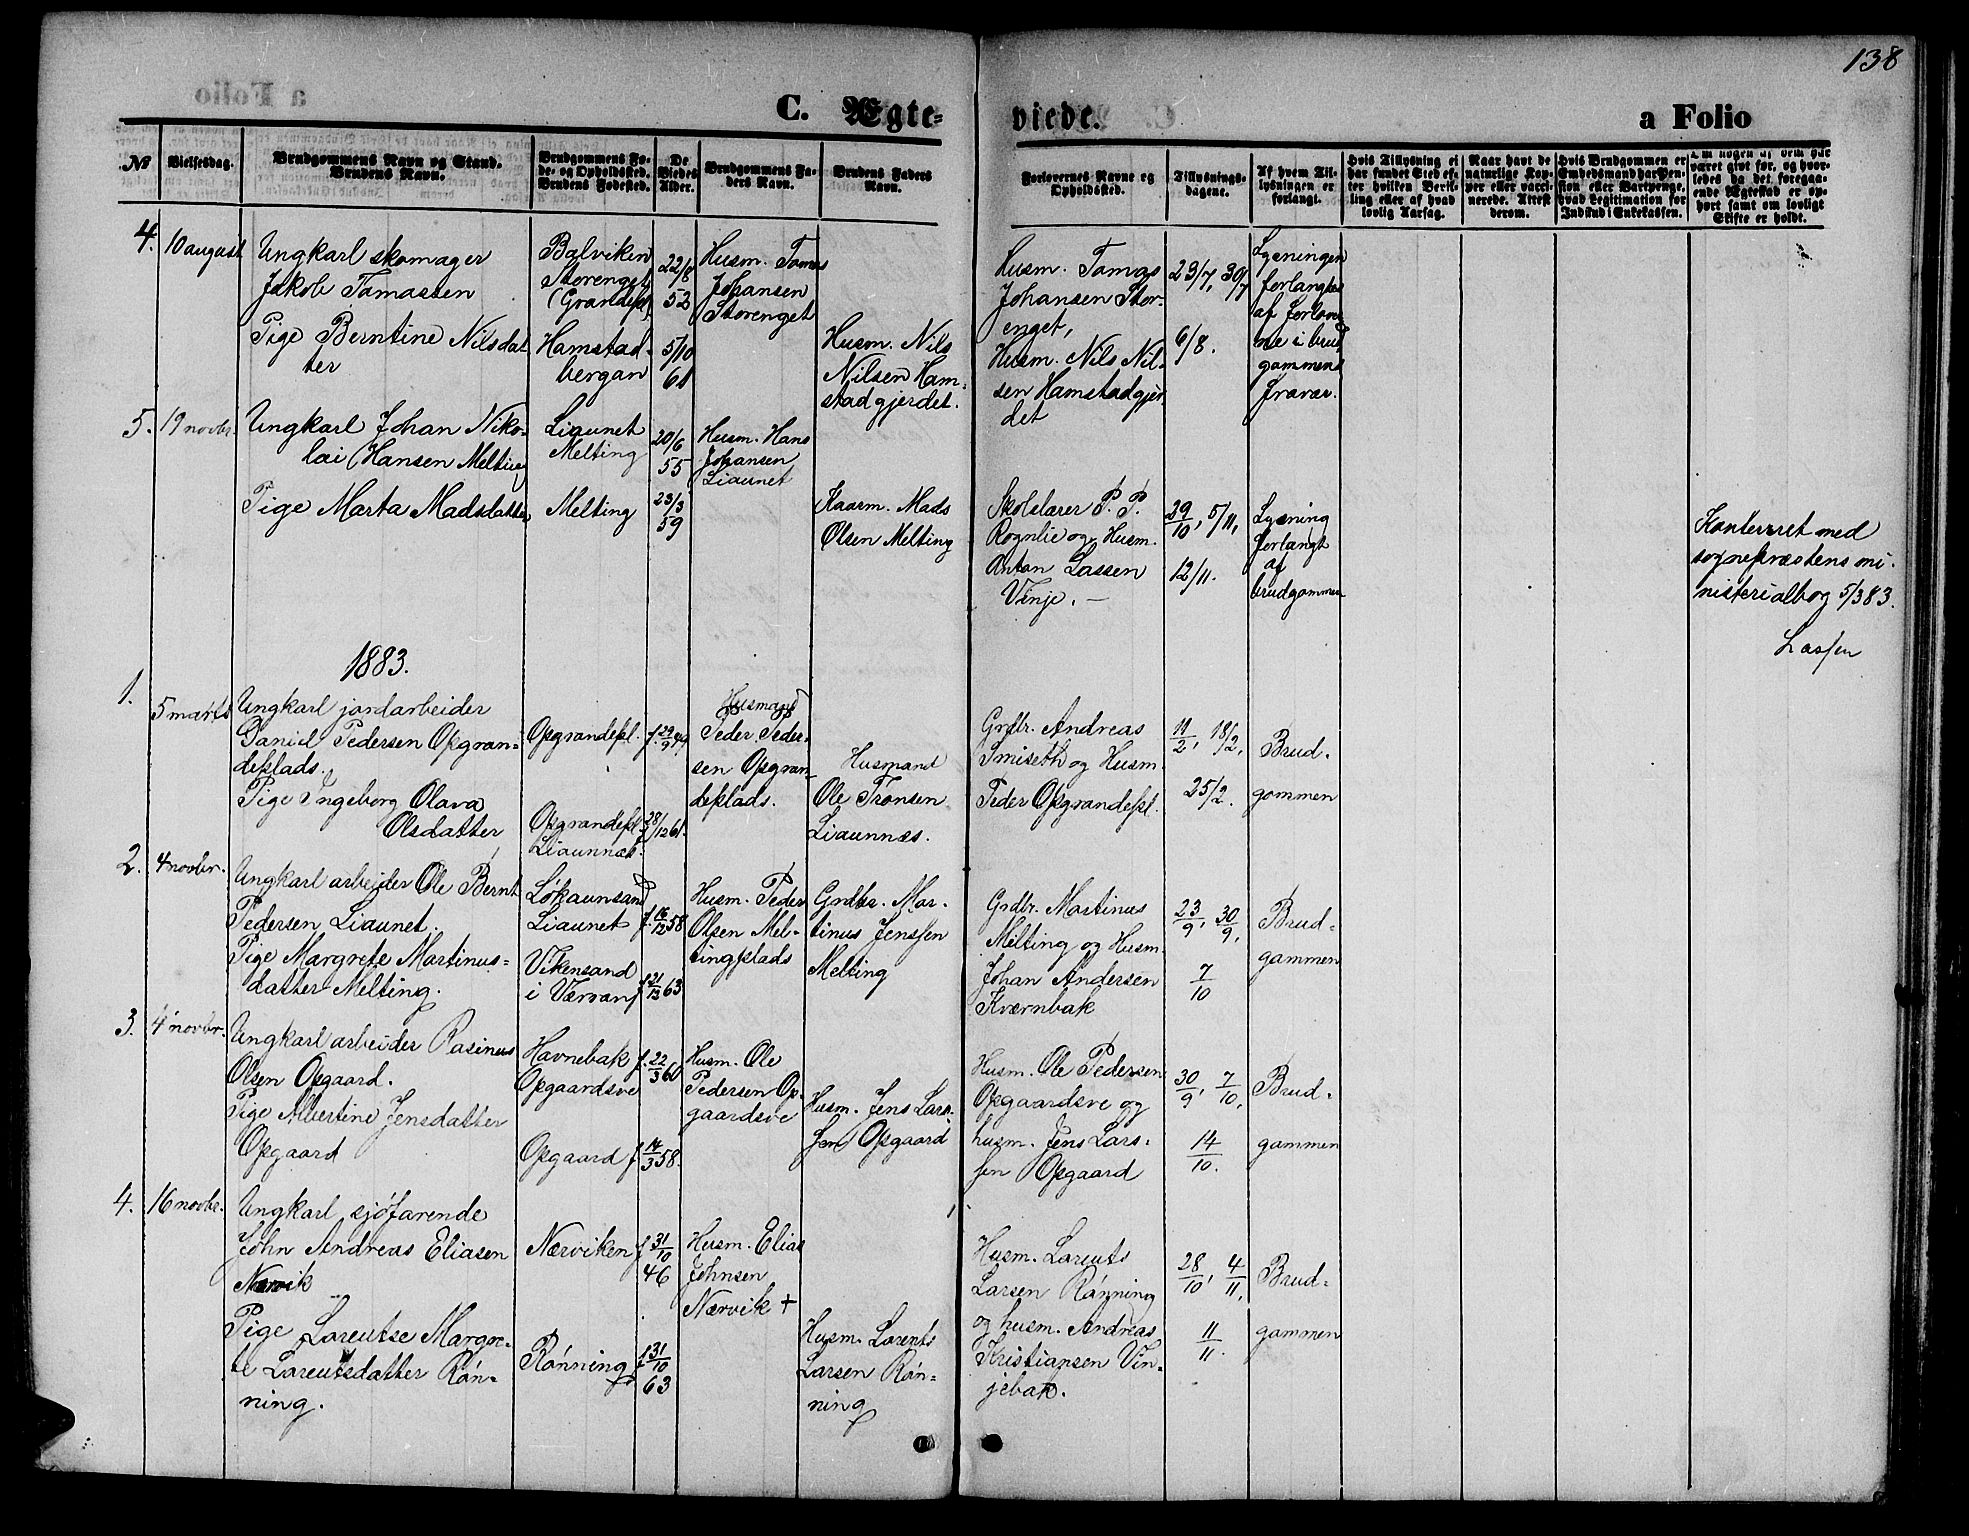 138
C. Ægte=
viede.
a Folio
№
Vielsesdag.
Brudgommens Navn og Stand.
Brudens Navn.
Brudgommens Fø-
de- og Opholdssted.
Brudens Fødested.
De
Viedes
Alder.
Brudgommens Fa-
ders Navn.
Brudens Faders
Navn.
Forlovernes Navne og
Opholdssted.
Tillysnings-
dagene.
Af hvem Til-
lysningen er
forlangt.
Hvis Tillysning ei
har fundet Sted ef-
ter hvilken Bevil-
ling eller af hvad
lovlig Aarsag.
Naar havt de
naturlige Kop-
per eller vacci-
nerede. Attest
derom.
Hvis Brudgommen er
Embedsmand har Pen-
sion eller Vartpenge,
hvad Legitimation for
Indskud i Enkekassen.
Om nogen af dem har
været givt før, og hvor-
ledes da det foregaa-
ende Ægteskab er op-
hørt samt om lovligt
Skifte er holdt.
4.
10 august
Ungkarl skomager
Jakob Tomassen
Pige Berntine Nilsdat
ter
Balviken
Storenget
(Grandepl)
Hamstad-
bergan
22/8
52
5/10
61
Husm. Tomas
Johansen
Storenget
Husm. Nils
Nilsen Ham-
stadgjerdet.
Husm. Tomas
Johansen Stor-
enget,
Husm. Nils Nil-
sen Hamstadgjer
det
23/7, 30/7
6/8.
Lysningen
forlangtes
af forlover
ne i brud
gommens
fravær.
5.
19 novbr.
Ungkarl Johan Niko-
lai Hansen Melting
Pige Marta Madsdatter
Liaunet
Melting
Melting
20/6
55
23/3
59
Husm. Hans
Johansen
Liaunet
Kaarm. Mads
Olsen Melting
Skolelærer P. P.
Rognlie og Husm.
Anton Lassen
Vinje. —
29/10, 5/11,
12/11.
Lysning
forlangt
af
brudgommen
Konfereret med
sogneprestens mi-
nisterialbog 5/3 83.
Lassen
1883.
1.
5 marts
Ungkarl jordarbeider
Daniel Pedersen Opgran=
deplads.
Pige Ingeborg Olava
Olsdatter
Opgrandepl.
Opgrandepl
Liaunnæs.
f. 29/9 49
f 28/12 61.
Husmand
Peder Peder-
sen Opgran-
deplads.
Husmand
Ole Tronsen
Liaunnæs.
Grdbr. Andreas
Smiseth og Husm.
Peder Opgrandepl.
11/2, 18/2,
25/2.
Brud-
gommen
2.
4 novbr.
Ungkarl arbejder Ole Bernt
Pedersen Liaunet.
Pige Margrete Martinus=
datter Melting.
Løkaunsand
Liaunet
Vikensand
i Værran
f. 16/12 58
f 21/12 63
Husm. Peder
Olsen Mel-
tingplads
Grdbr. Mar-
tinus Jenssen
Melting
Grdbr. Martinus
Melting og Husm.
Johan Andersen
Kværnbak
23/9, 30/9,
7/10
Brud=
gommen
3.
4 novbr.
Ungkarl arbeider Rasinus
Olsen Opgaard.
Pige Albertine Jensdatter
Opgaard
Havnebak
Opgaardsve
Opgaard
f. 22/3 60
f 14/3 58.
Husm. Ole
Pedersen Op-
gaardsve
Husm. Jens Lars-
sen Opgaard
Husm. Ole Pedersen
Opgaardsve og
husm. Jens Lars-
sen Opgaard
30/9, 7/10,
14/10.
Brud-
gommen
4.
16 novbr.
Ungkarl sjøfarende
John Andreas Eliasen
Nærvik
Pige Lorentse Margre-
te Lorentsdatter Røn-
ning.
Nærviken
Rønning
f 31/10
46
f 31/10
63
Husm. Elias
Johnsen
Nærvik +
Husm. Lorents
Larsen Røn=
ning
Husm. Lorents
Larsen Rønning
og husm. Andreas
Kristiansen Vin-
jebak.
28/10, 4/11,
11/11.
Brud=
gommen